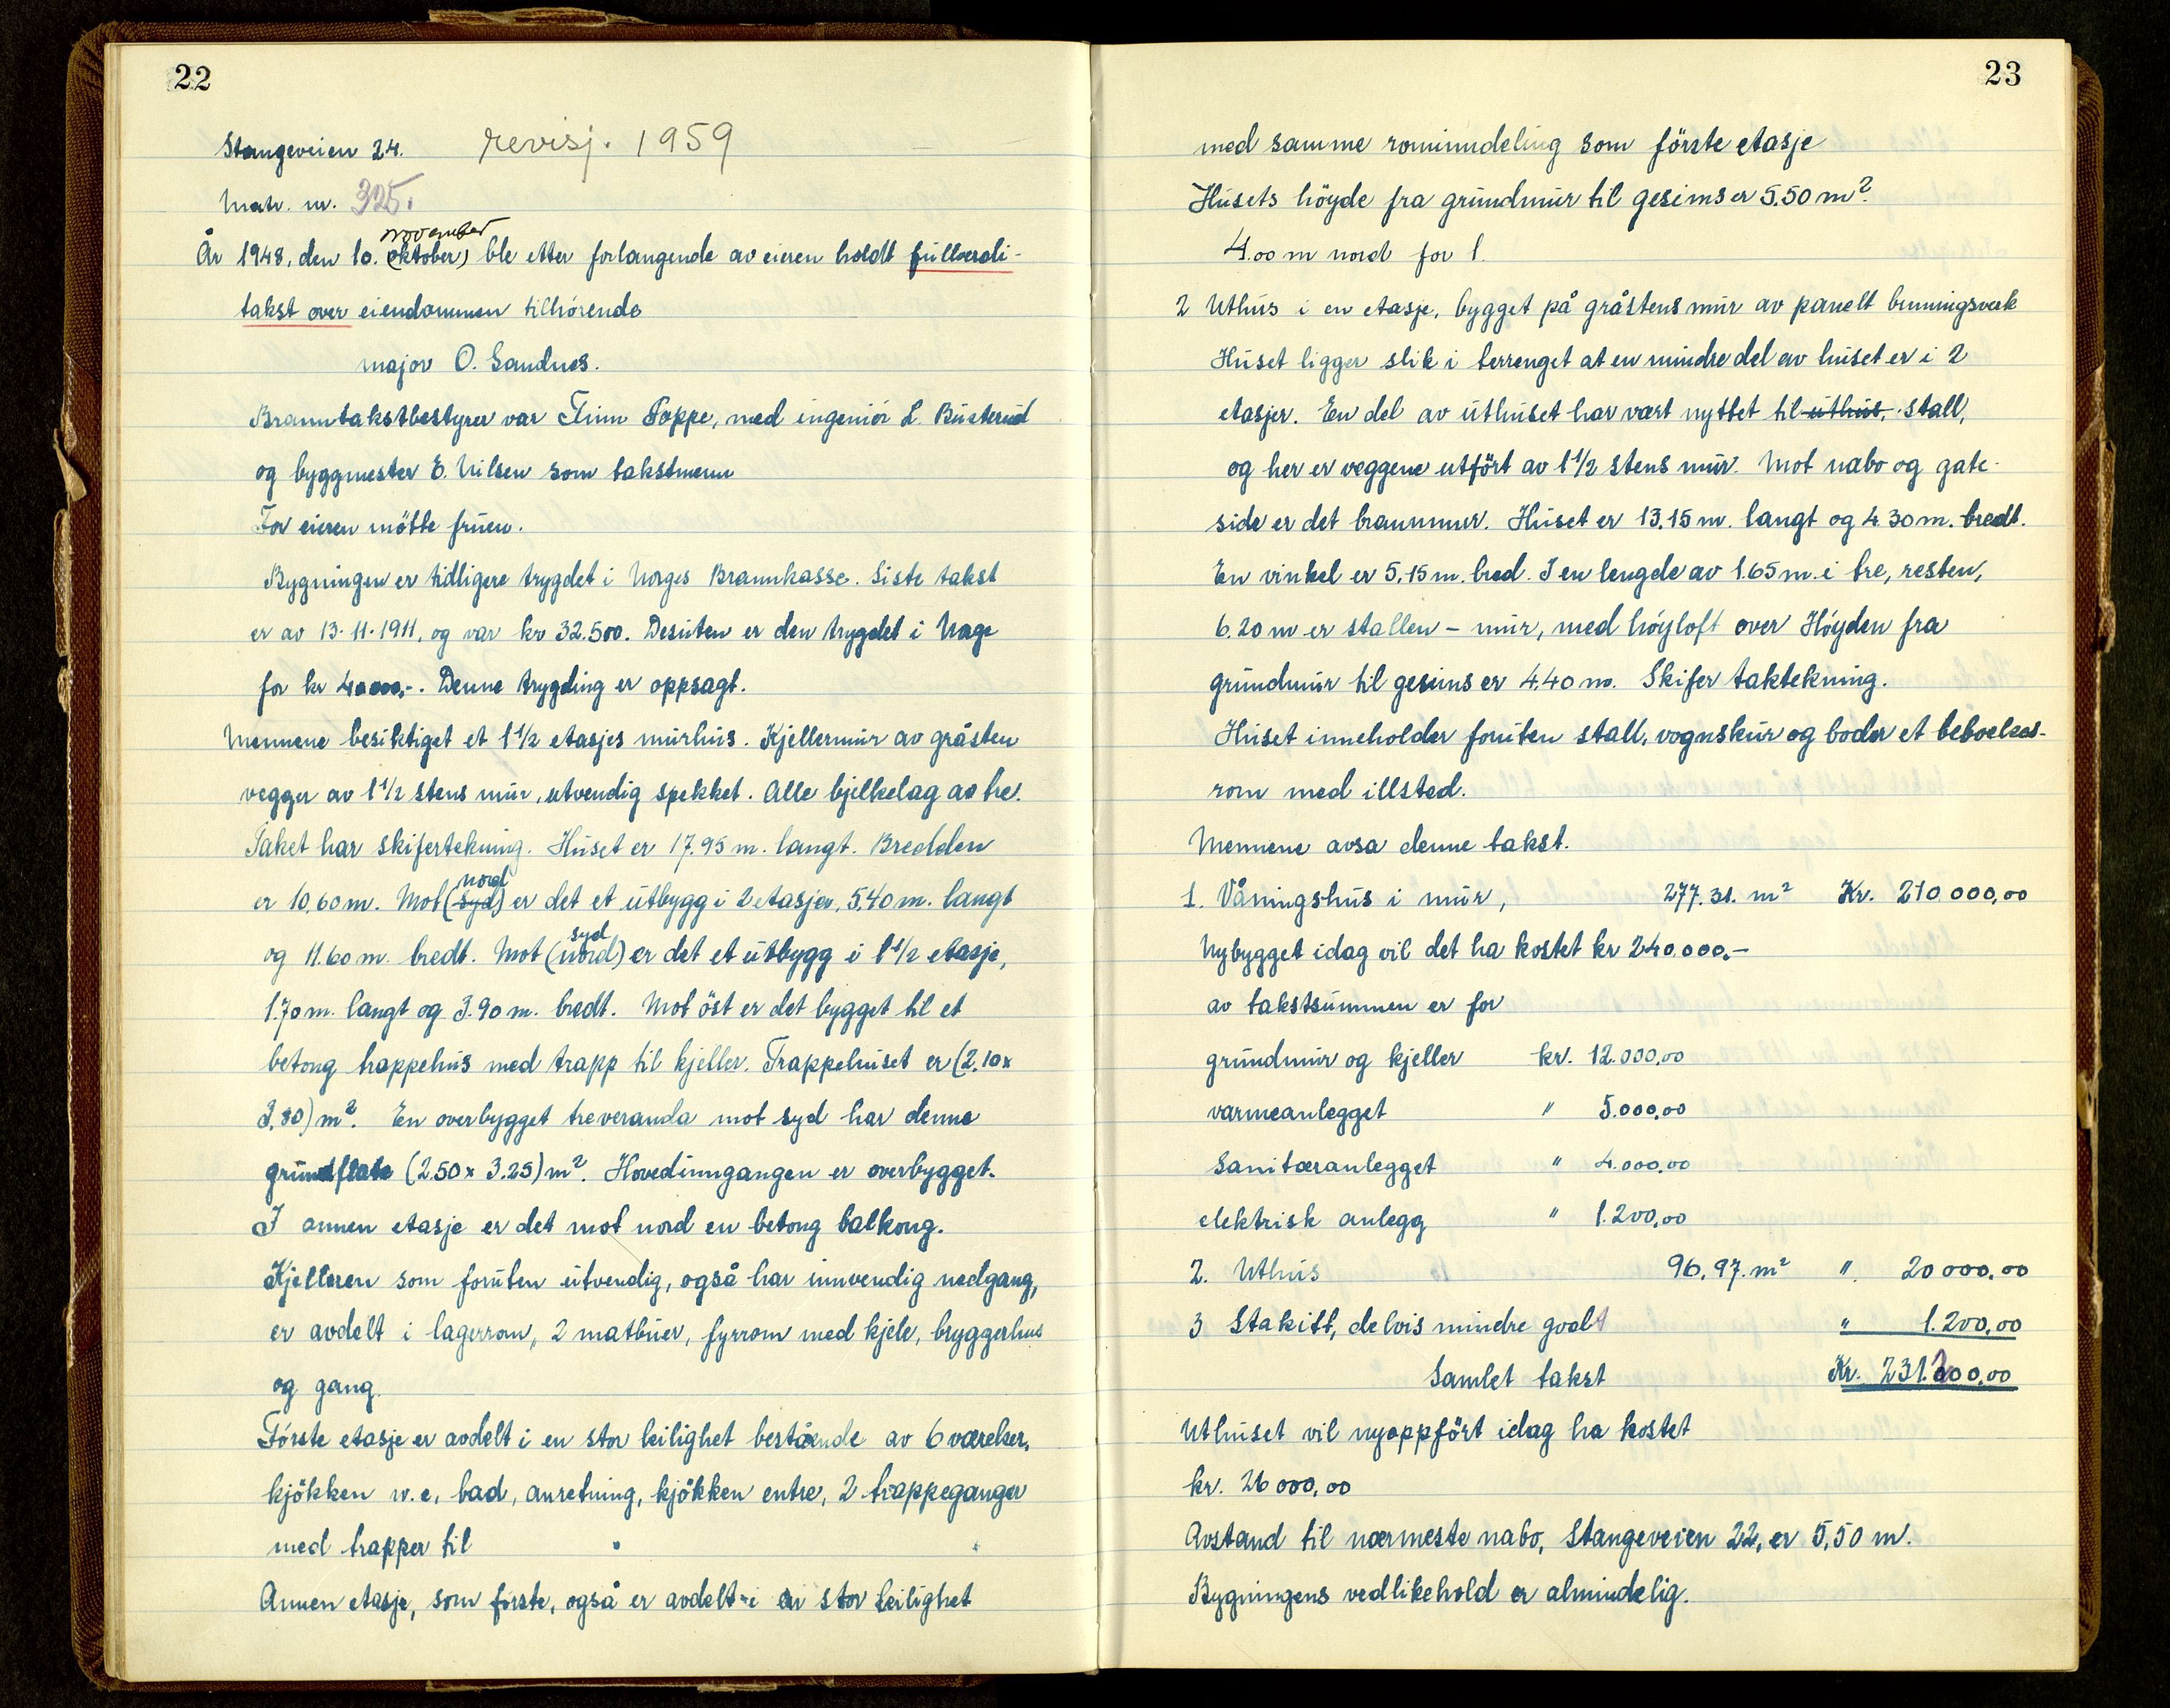 22
Stangeveien 24. revisj. 1959
Matr. nr. 325.
november
År 1948, den 10. (oktober) ble etter forlangende av eieren holdt fullverdi-
takst over eiendommen tilhörende
major O. Sandnes.
Branntakstbestyrer var Finn Poppe, med ingeniör L. Busterud
og byggmester E. Nilsen som takstmenn
For eieren mötte fruen.
Bygningen er tidligere trygdet i Norges Brannkasse. Siste takst
er av 13.11.1911, og var kr 32.500. Desuten er den trygdet i Norge
for kr 40000,-. Denne trygding er oppsagt.
Mennene besiktiget et 1 1/2 etasjes murhus. Kjellermur av gråsten
vegger av 1 1/2 stens mur, utvendig spekket. Alle bjelkelag av tre.
Taket har skifertekning. Huset er 17.95 m. langt. Bredden
nord
er 10,60 m. Mot (syd) er det et utbygg i 2 etasjer, 5,40 m. langt
syd
og 11.60 m. bredt. Mot (nord) er det et utbygg i 1 1/2 etasje,
1.70 m. langt og 3.90 m. bredt. Mot öst er det bygget til et
betong trappehus med trapp til kjeller. Trappehuset er (2.10 x
3,80) m². En overbygget treveranda mot syd har denne
grundflate (2.50 x 3.25) m². Hovedinngangen er overbygget.
I annen etasje er det mot nord en betong balkong.
Kjelleren som foruten utvendig, også har innvendig nedgang,
er avdelt i lagerrom, 2 matbuer, fyrrom med kjele, bryggerhus
og gang.
Förste etasje er avdelt i en stor leilighet bestående av 6 værelser,
kjökken w.c, bad, anretning, kjökken entre, 2 trappeganger
med trapper til
Annen etasje, som förste, også er avdelt i en stor leilighet
23
med samme rominndeling som förste etasje
Husets höyde fra grundmur til gesims er 5.50 m².
4.00 m nord for 1.
2 Uthus i en etasje, bygget på gråstens mur av panelt binningsverk
Huset ligger slik i terrenget at en mindre del av huset er i 2
etasjer. En del av uthuset har vært nyttet til uthus, stall,
og her er veggene utfört av 1 1/2 stens mur. Mot nabo og gate-
side er det brannmur. Huset er 13.15 m. langt og 4.30 m. bredt.
En vinkel er 5,15 m. bred. I en lengde av 1.65 m. i tre, resten,
6.20 m er stallen – mur, med höyloft over Höyden fra
grundmur til gesims er 4.40 m. Skifer taktekning.
Huset inneholder foruten stall, vognskur og boder et beboelses-
rom med illsted.
Mennene avsa denne takst.
1. Våningshus i mur, 277.31. m² Kr. 210 000,00
Nybygget idag vil det ha kostet kr 240.000.-
av takstsummen er for
grundmur og kjeller kr. 12.000,00
varmeanlegget " 5.000,00
Sanitæranlegget " 4.000,00
elektrisk anlegg " 1.200,00
2. Uthus 96,97. m² " 20 000,00
3 Stakitt, delvis mindre godt " 1.200,00
Samlet takst Kr. 231.200,00
Uthuset vil nyoppfört idag ha kostet
kr. 26 000,00
Avstand til nærmeste nabo, Stangeveien 22, er 5,50 m.
Bygningens vedlikehold er almindelig.